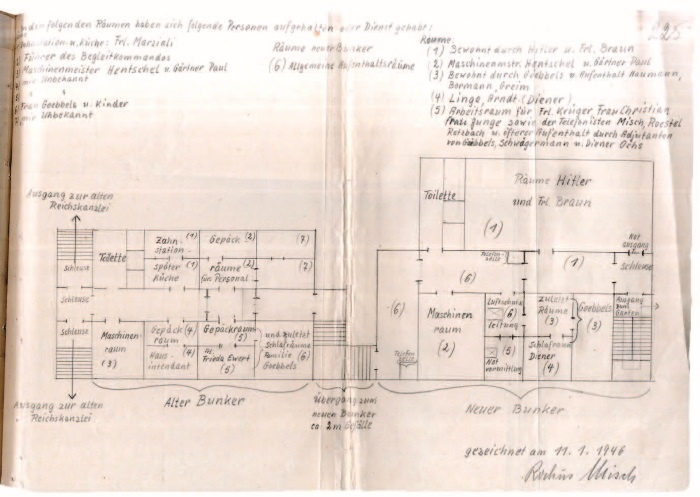 In den folgenden Räumen haben sich folgende Personen aufgehalten oder Dienst gehabt:
Zahnstation u. Küche: Frl. Marziali
Führer des Begleitkommandos
Maschinenmeister Hentschel u. Gärtner Paul
mir Unbekannt
"
Frau Goebbels u. Kinder
mir Unbekannt
Räume neuer Bunker
(6) Allgemeine Aufenthaltsräume
225
Räume:
(1) Bewohnt durch Hitler u. Frl. Braun
(2) Maschinenmstr. Hentschel u. Gärtner Paul
(3) Bewohnt durch Goebbels u. Aufenthalt Naumann,
Bormann, Greim
(4) Linge, Arndt (Diener).
(5) Arbeitsraum für Frl. Krüger Frau Christian
Frau Junge sowie der Telefonisten Misch, Roestel
Retzbach u. öfterer Aufenthalt durch Adjutanten
von Goebbels, Schwägermann u. Diener Ochs
Ausgang zur alten
Reichskanzlei
Schleuse
Schleuse
Schleuse
Toilette
Zahn- (1)
station
später (1)
Küche
Gepäck (2)
räume (2)
für Personal
(7)
(7)
Maschinen
raum
(3)
Gepäck (4)
raum
Haus- (4)
intendant
Gepäckraum
(5)
Frieda Ewert
(5)
und zuletzt
Schlafräume
Familie (6)
Goebbels
Ausgang zur alten
Reichskanzlei
Alter Bunker
Übergang zum
neuen Bunker
ca 2m Gefälle
Toilette
Räume Hitler
und Frl. Braun
(1)
(1)
Not
ausgang
Schleuse
(6)
(6)
Maschinen
raum
(2)
Luftschutz
(6)
leitung
(5)
Not
vermittlung
zuletzt
Räume
(3)
Goebbels
(3)
Schlafraum
Diener
(4)
Ausgang
zum
Garten
Neuer Bunker
gezeichnet am 11.1.1946
Rochus Misch